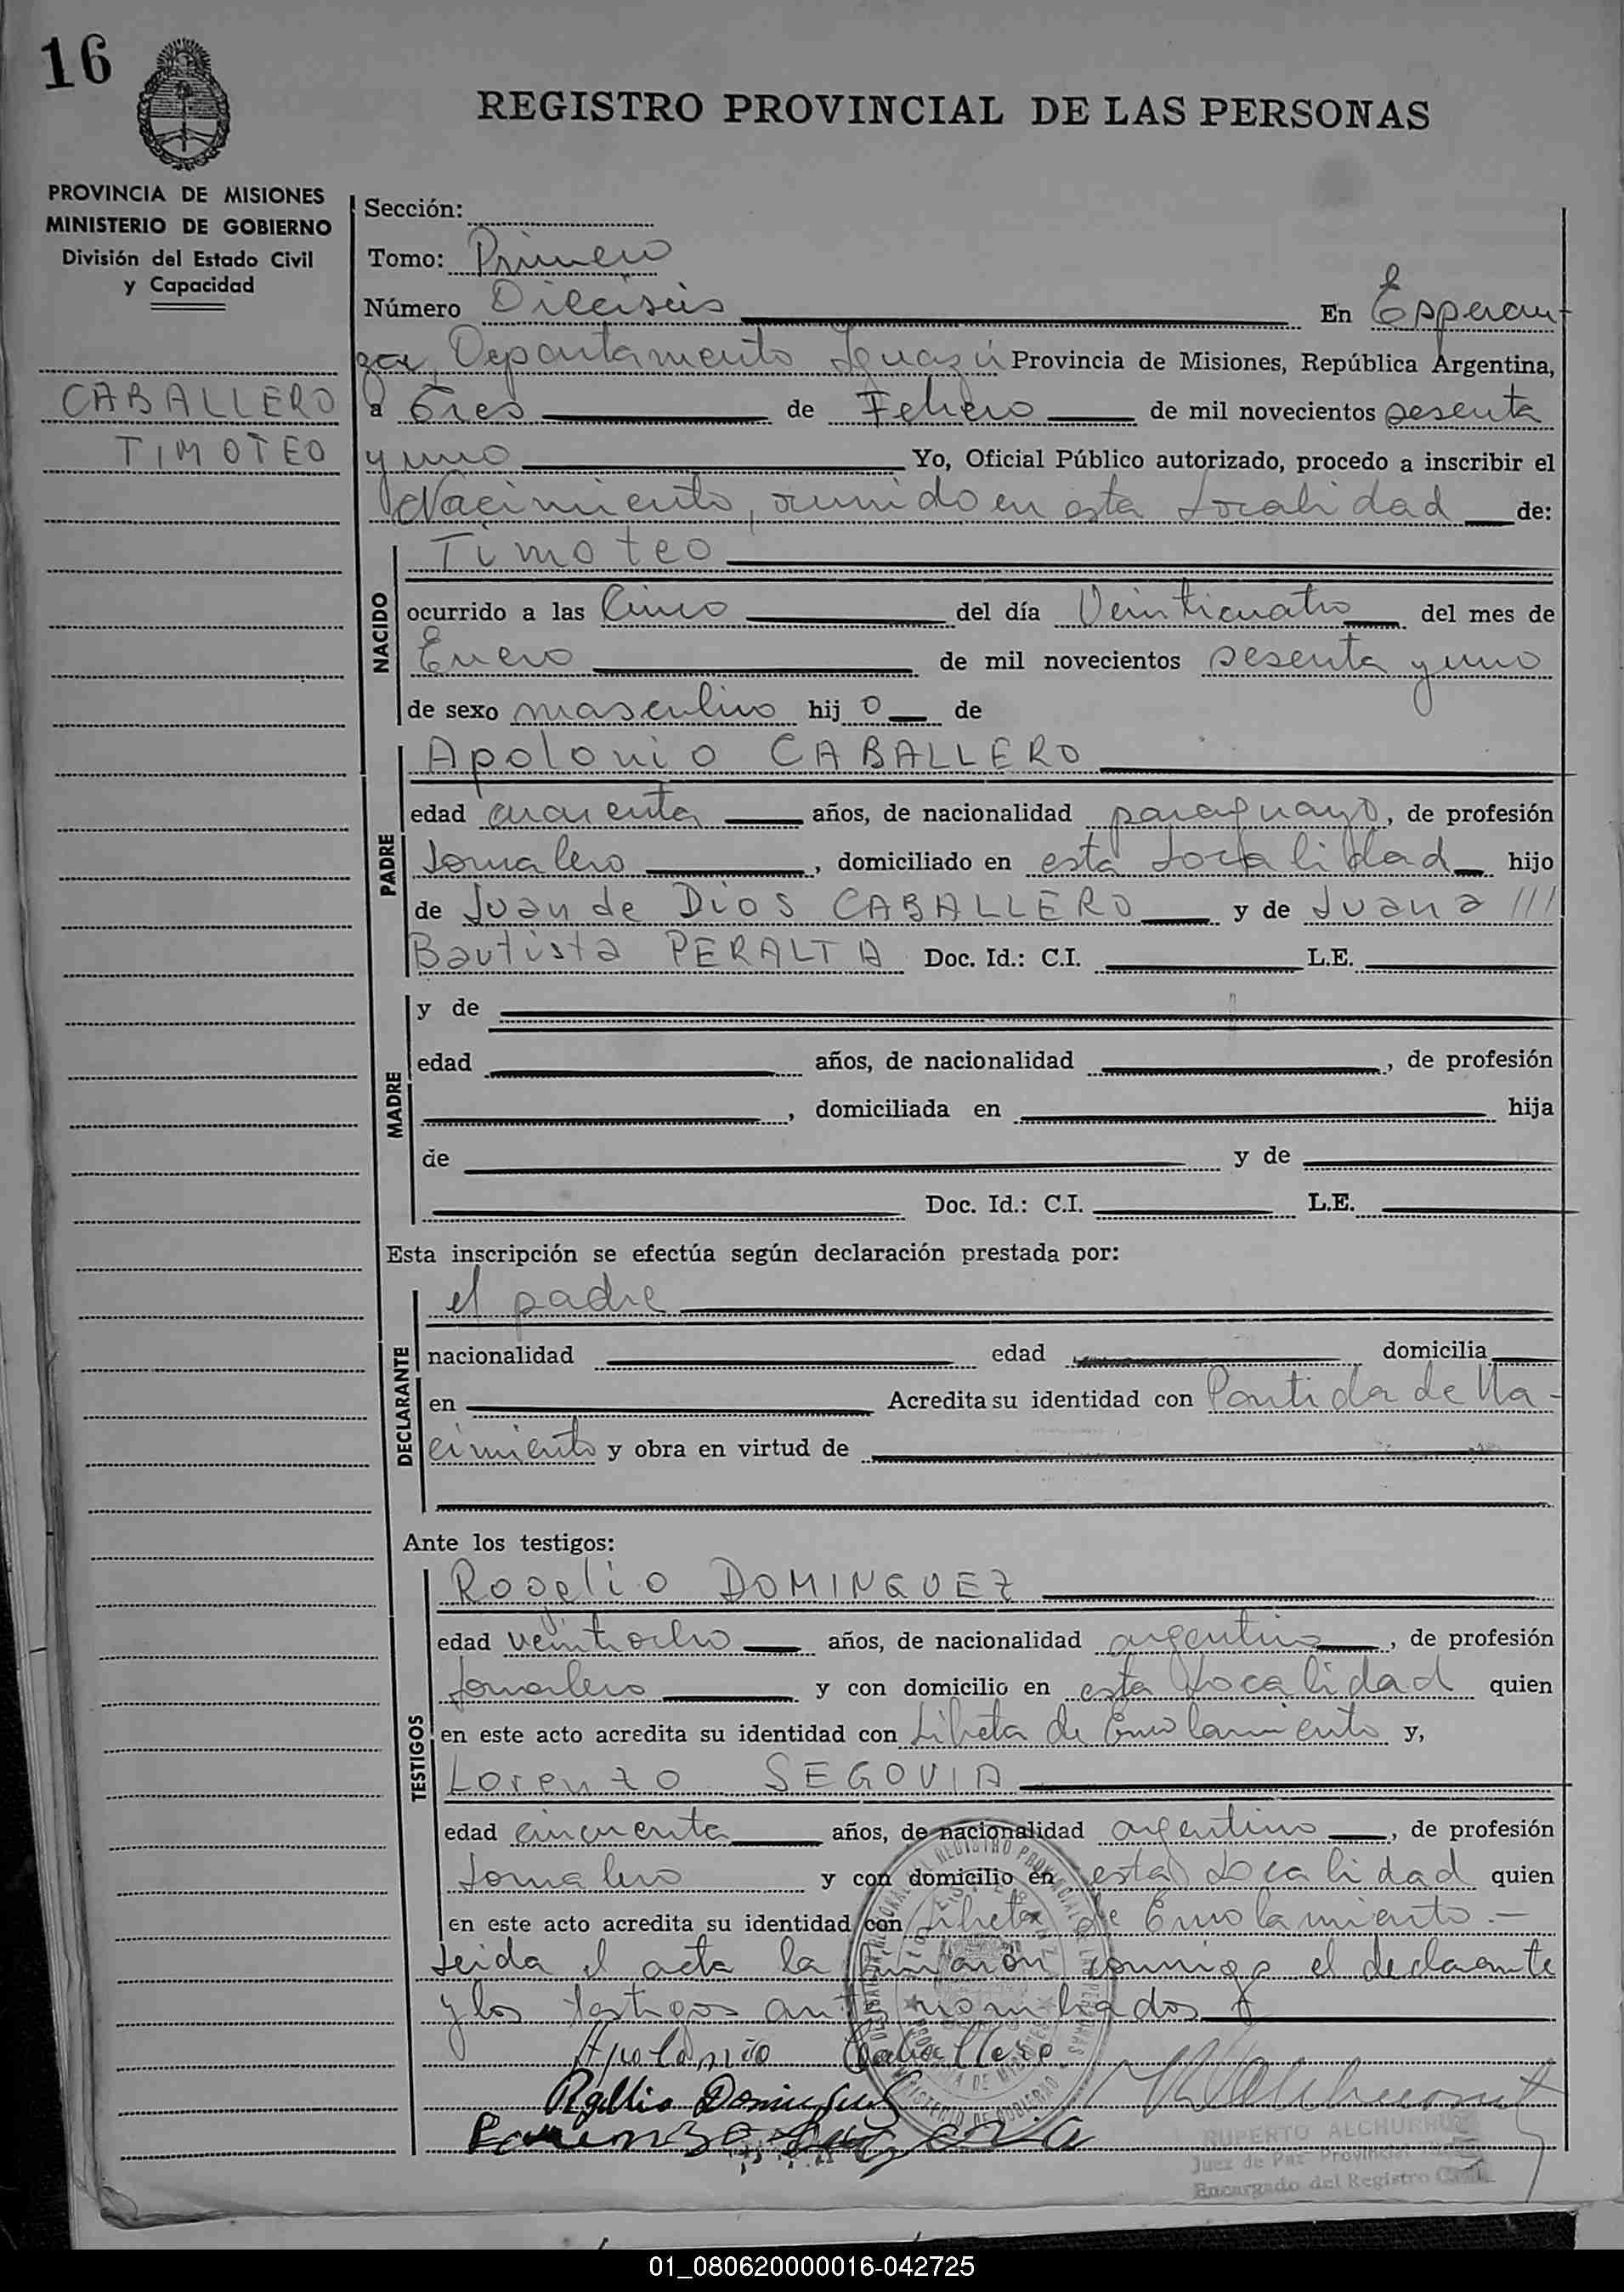 16
REGISTRO PROVINCIAL DE LAS PERSONAS
PROVINCIA DE MISIONES
MINISTERIO DE GOBIERNO
División del Estado Civil
y Capacidad
CABALLERO
TIMOTEO
Sección:
Tomo: Primero
Número Dieciseis En Esperan
za, Departamento Iguazú Provincia de Misiones, República Argentina,
a Tres de Febrero de mil novecientos sesenta
y uno Yo, Oficial Público autorizado, procedo a inscribir el
Nacimiento, ocurrido en esta Localidad de:
NACIDO
Timoteo
ocurrido a las Cinco del día Veinticuatro del mes de
Enero de mil novecientos sesenta y uno
de sexo masculino hij o de
PADRE
Apolonio CABALLERO
edad cuarenta años, de nacionalidad paraguayo, de profesión
Jornalero, domiciliado en esta Localidad hijo
de Juan de Dios CABALLERO y de Juana ///
Bautista PERALTA Doc. Id.: C.I. L.E.
MADRE
y de
edad años, de nacionalidad , de profesión
, domiciliada en hija
de y de
Doc. Id.: C.I. L.E.
Esta inscripción se efectúa según declaración prestada por:
DECLARANTE
el padre
nacionalidad edad domicilia
en Acredita su identidad con Partida de Na-
cimiento y obra en virtud de
Ante los testigos:
TESTIGOS
Rogelio DOMINGUEZ
edad veintiocho años, de nacionalidad argentino, de profesión
Jornalero y con domicilio en esta Localidad quien
en este acto acredita su identidad con Libreta de Enrolamiento y,
Lorenzo SEGOVIA
edad cincuenta años, de nacionalidad argentino, de profesión
Jornalero y con domicilio en esta Localidad quien
en este acto acredita su identidad con Libreta de Enrolamiento.-
Leida el acta la firmaron conmigo el declarante
y los testigos antes nombrados
Apolonio Caballero
Rogelio Dominguez
Lorenzo Segovia
RUPERTO
Juez de Paz Provincial
Encargado del Registro Civil
01_080620000016-042725